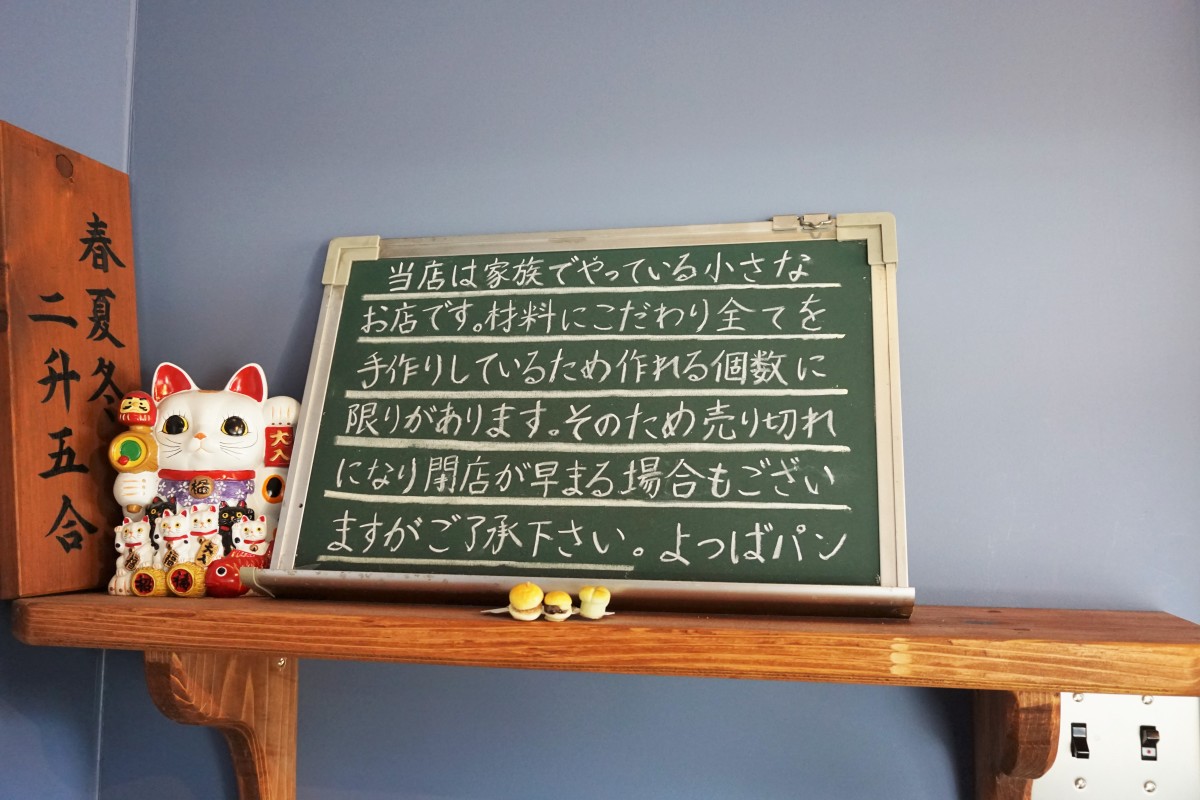 春夏冬
二升五合
大入
福
当店は家族でやっている小さな
お店です。材料にこだわり全てを
手作りしているため作れる個数に
限りがあります。そのため売り切れ
になり閉店が早まる場合もござい
ますがご了承下さい。よつばパン